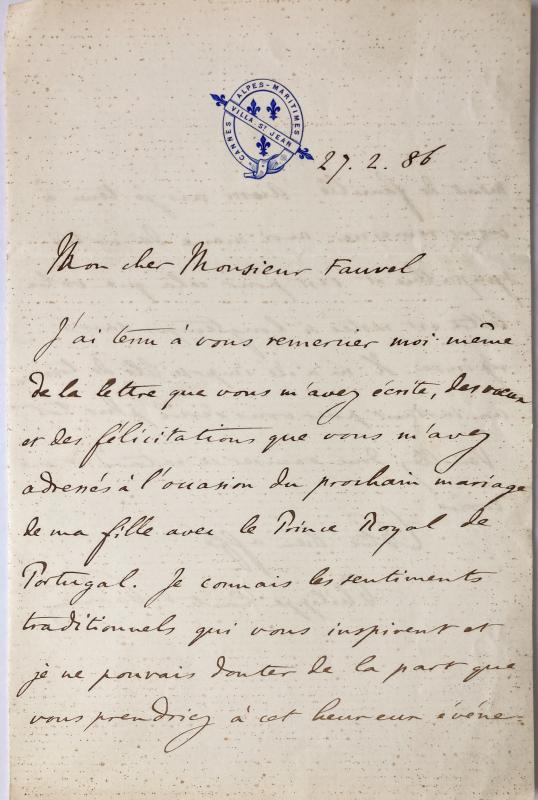 ALPES-MARITIMES
VILLA St JEAN
CANNES
27. 2. 86
Mon cher Monsieur Fauvel
J'ai tenu à vous remercier moi même
de la lettre que vous m'avez écrite, des vœux
et des félicitations que vous m'avez
adressés à l'occasion du prochain mariage
de ma fille avec le Prince Royal de
Portugal. Je connais les sentiments
traditionnels qui vous inspirent et
je ne pouvais douter de la part que
vous prendriez à cet heureux événe-